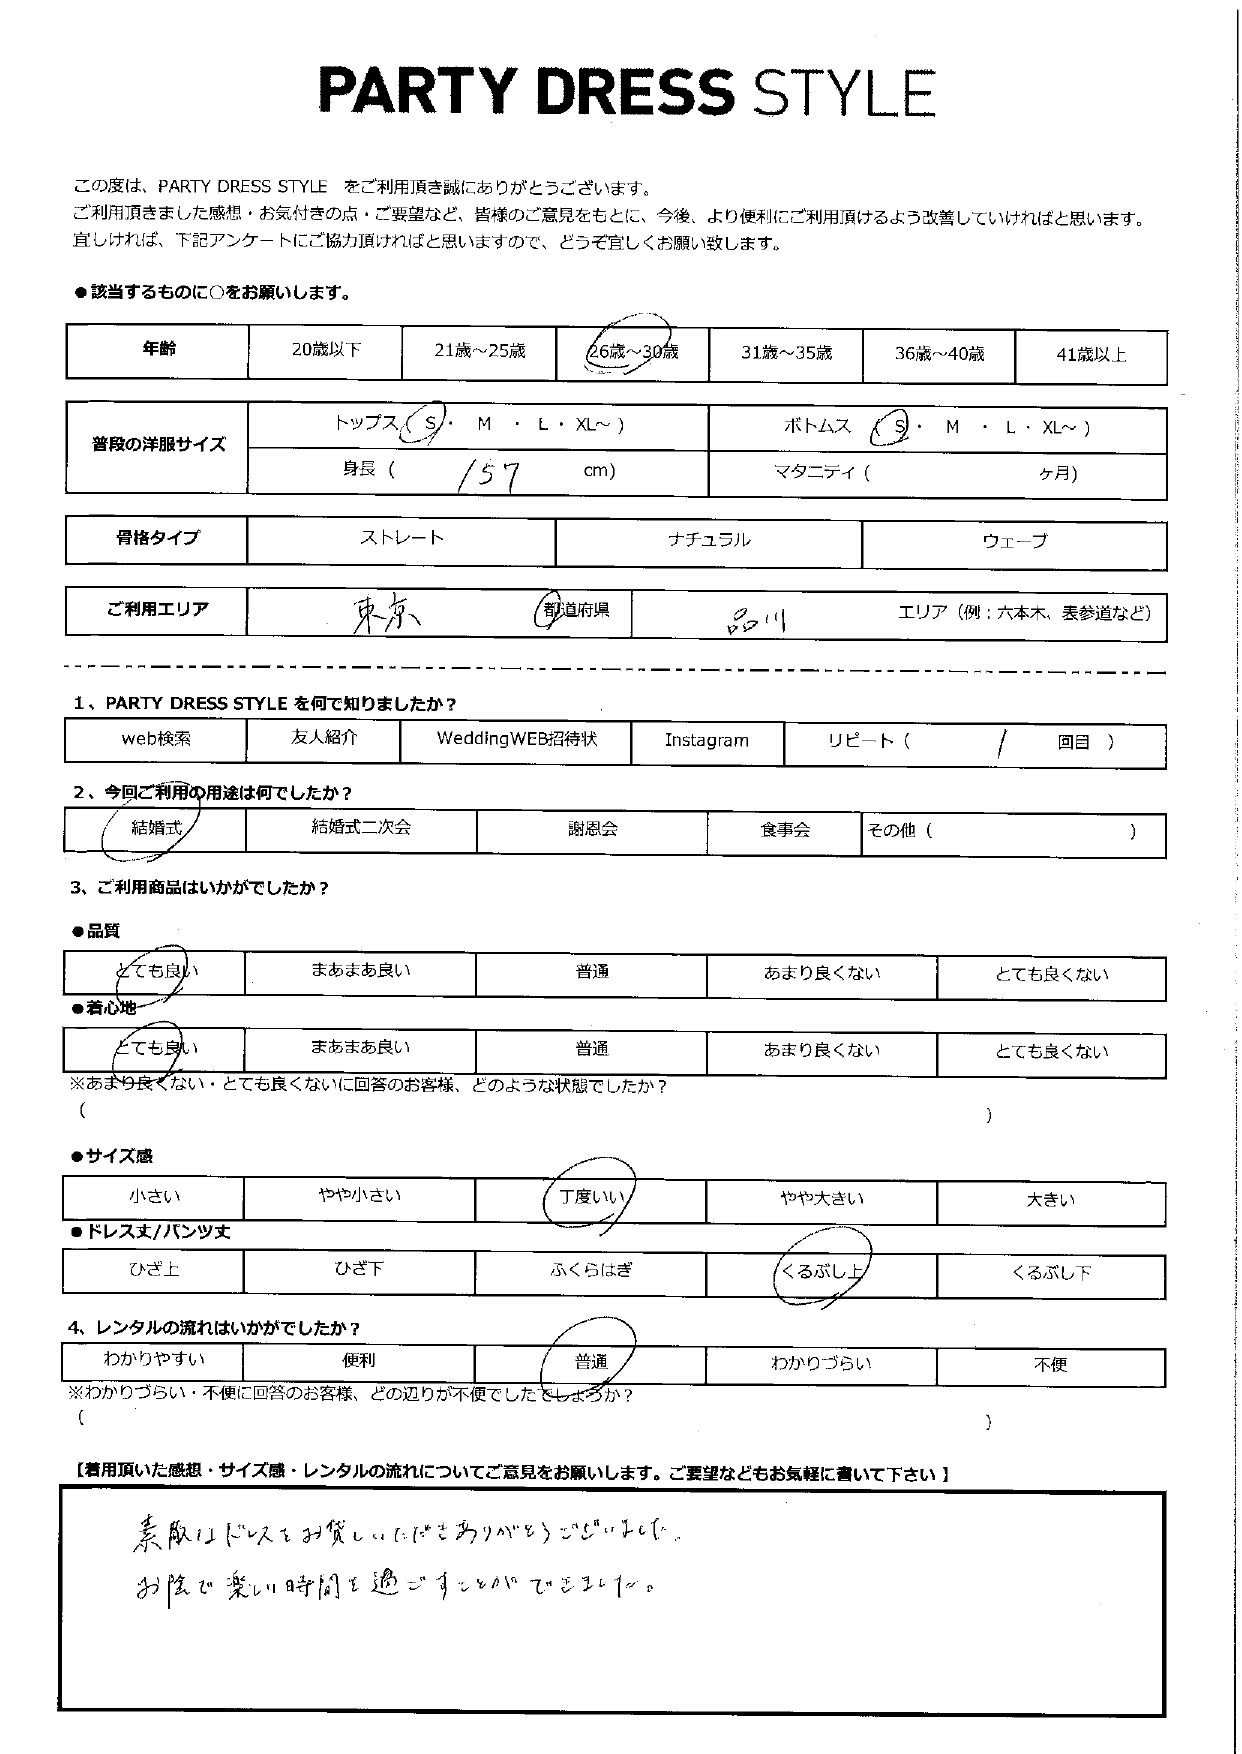 PARTY DRESS STYLE
この度は、PARTY DRESS STYLE をご利用頂き誠にありがとうございます。
ご利用頂きました感想・お気付きの点・ご要望など、皆様のご意見をもとに、今後、より便利にご利用頂けるよう改善していければと思います。
宜しければ、下記アンケートにご協力頂ければと思いますので、どうぞ宜しくお願い致します。
●該当するものに○をお願いします。
年齢 20歳以下 21歳～25歳 26歳～30歳 31歳～35歳 36歳～40歳 41歳以上
普段の洋服サイズ
トップス( S ・ M ・ L ・ XL～ ) ボトムス ( S ・ M ・ L ・ XL～ )
身長 ( 157 cm) マタニティ ( ヶ月)
骨格タイプ ストレート ナチュラル ウェーブ
ご利用エリア 東京 都道府県 品川 エリア（例：六本木、表参道など）
1、PARTY DRESS STYLE を何で知りましたか？
web検索 友人紹介 WeddingWEB招待状 Instagram リピート ( / 回目 )
2、今回ご利用の用途は何でしたか？
結婚式 結婚式二次会 謝恩会 食事会 その他 ( )
3、ご利用商品はいかがでしたか？
●品質
とても良い まあまあ良い 普通 あまり良くない とても良くない
●着心地
とても良い まあまあ良い 普通 あまり良くない とても良くない
※あまり良くない・とても良くないに回答のお客様、どのような状態でしたか？
( )
●サイズ感
小さい やや小さい 丁度いい やや大きい 大きい
●ドレス丈/パンツ丈
ひざ上 ひざ下 ふくらはぎ くるぶし上 くるぶし下
4、レンタルの流れはいかがでしたか？
わかりやすい 便利 普通 わかりづらい 不便
※わかりづらい・不便に回答のお客様、どの辺りが不便でしたでしょうか？
( )
【着用頂いた感想・サイズ感・レンタルの流れについてご意見をお願いします。ご要望などもお気軽に書いて下さい 】
素敵なドレスをお貸しいただきありがとうございました。
お陰で楽しい時間を過ごすことができました。